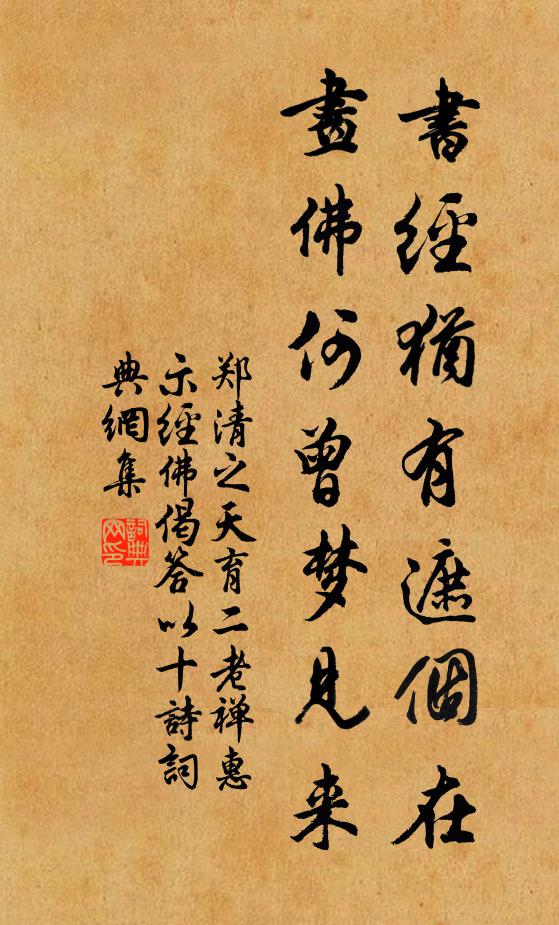 書經猶有遮個在
畫佛何曾梦見来
郑清之天育二老禅惠
示經佛偈答以十詩詞
典網集
詞典
网印